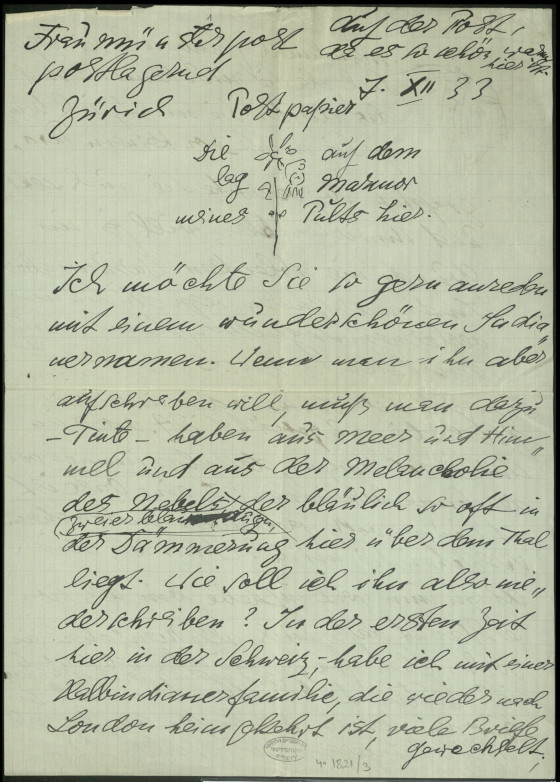 Fraumünsterpost
postlagernd
Zürich
Auf der Post,
da es so schön warm
hier ist.
7. XII 33
Postpapier
Die auf dem
lag Marmor
meines Pults hier.
Ich möchte Sie so gern anreden
mit einem wunderschönen India
nernamen. Wenn man ihn aber
aufschreiben will, muß man dazu
- Tinte - haben aus Meer und Him„
mel und aus der Melancholie
des Nebels, der bläulich so oft in
(zweier blauer Augen)
der Dämmerung hier über dem Thal
liegt. Wie soll ich ihn also nie„
derschreiben? In der ersten Zeit
hier in der Schweiz, habe ich mit einer
Halbindianerfamilie, die wieder nach
London heimgekehrt ist, viele Briefe
gewechselt,
40 1821/3